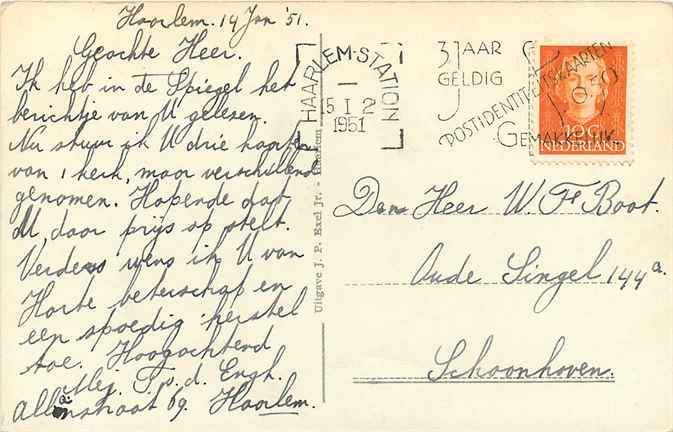 Haarlem. 14 Jan '51.
Geachte Heer.
Ik heb in de Spiegel het
berichtje van U gelezen.
Nu stuur ik U drie kaarten
van 1 kerk, maar verschillend
genomen. Hopende dat
U, daar prijs op stelt.
Verders wens ik U van
Harte beterschap en
een spoedig herstel
toe. Hoogachtend
Mej. T. v. d. Engh.
straat 69. Haarlem.
HAARLEM-STATION
15 I 2
1951
3 JAAR
GELDIG
POSTIDENTITEITSKAARTEN
f 0.50
GEMAKKELIJK
10 C
NEDERLAND
Uitgave J. P. Exel Jr. - Haarlem
Den Heer W. Fs Boot.
Oude Singel 144a.
Schoonhoven.